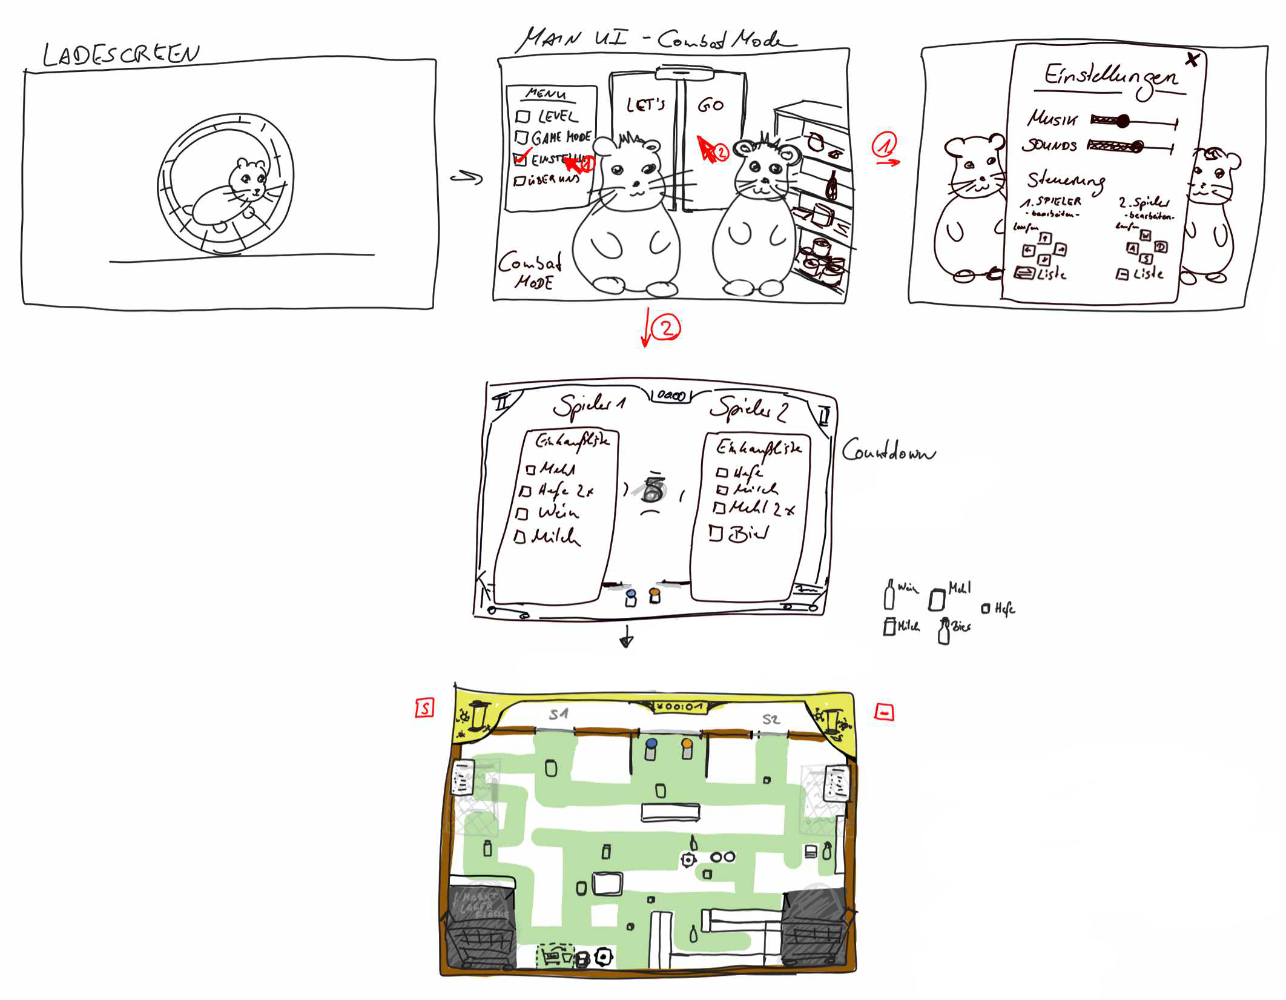 LADESCREEN
MAIN UI - Combat Mode
MENU
LEVEL
GAME MODE
EINSTELLU
ÜBER UNS
LET'S GO
1
2
Combat
MODE
1
X
Einstellungen
MUSIK
SOUNDS
Steuerung
1. SPIELER
- bearbeiten -
laufen
Liste
2. Spieler
- bearbeiten -
laufen
W
A D
S
Liste
2
00:00
Spieler 1
Einkaufliste
Mehl
Hefe 2x
Wein
Milch
3
Spieler 2
Einkaufliste
Hefe
Milch
Mehl 2x
Bier
Countdown
Wein
Mehl
Hefe
Milch
Bier
S
S1
00:01
S2
-